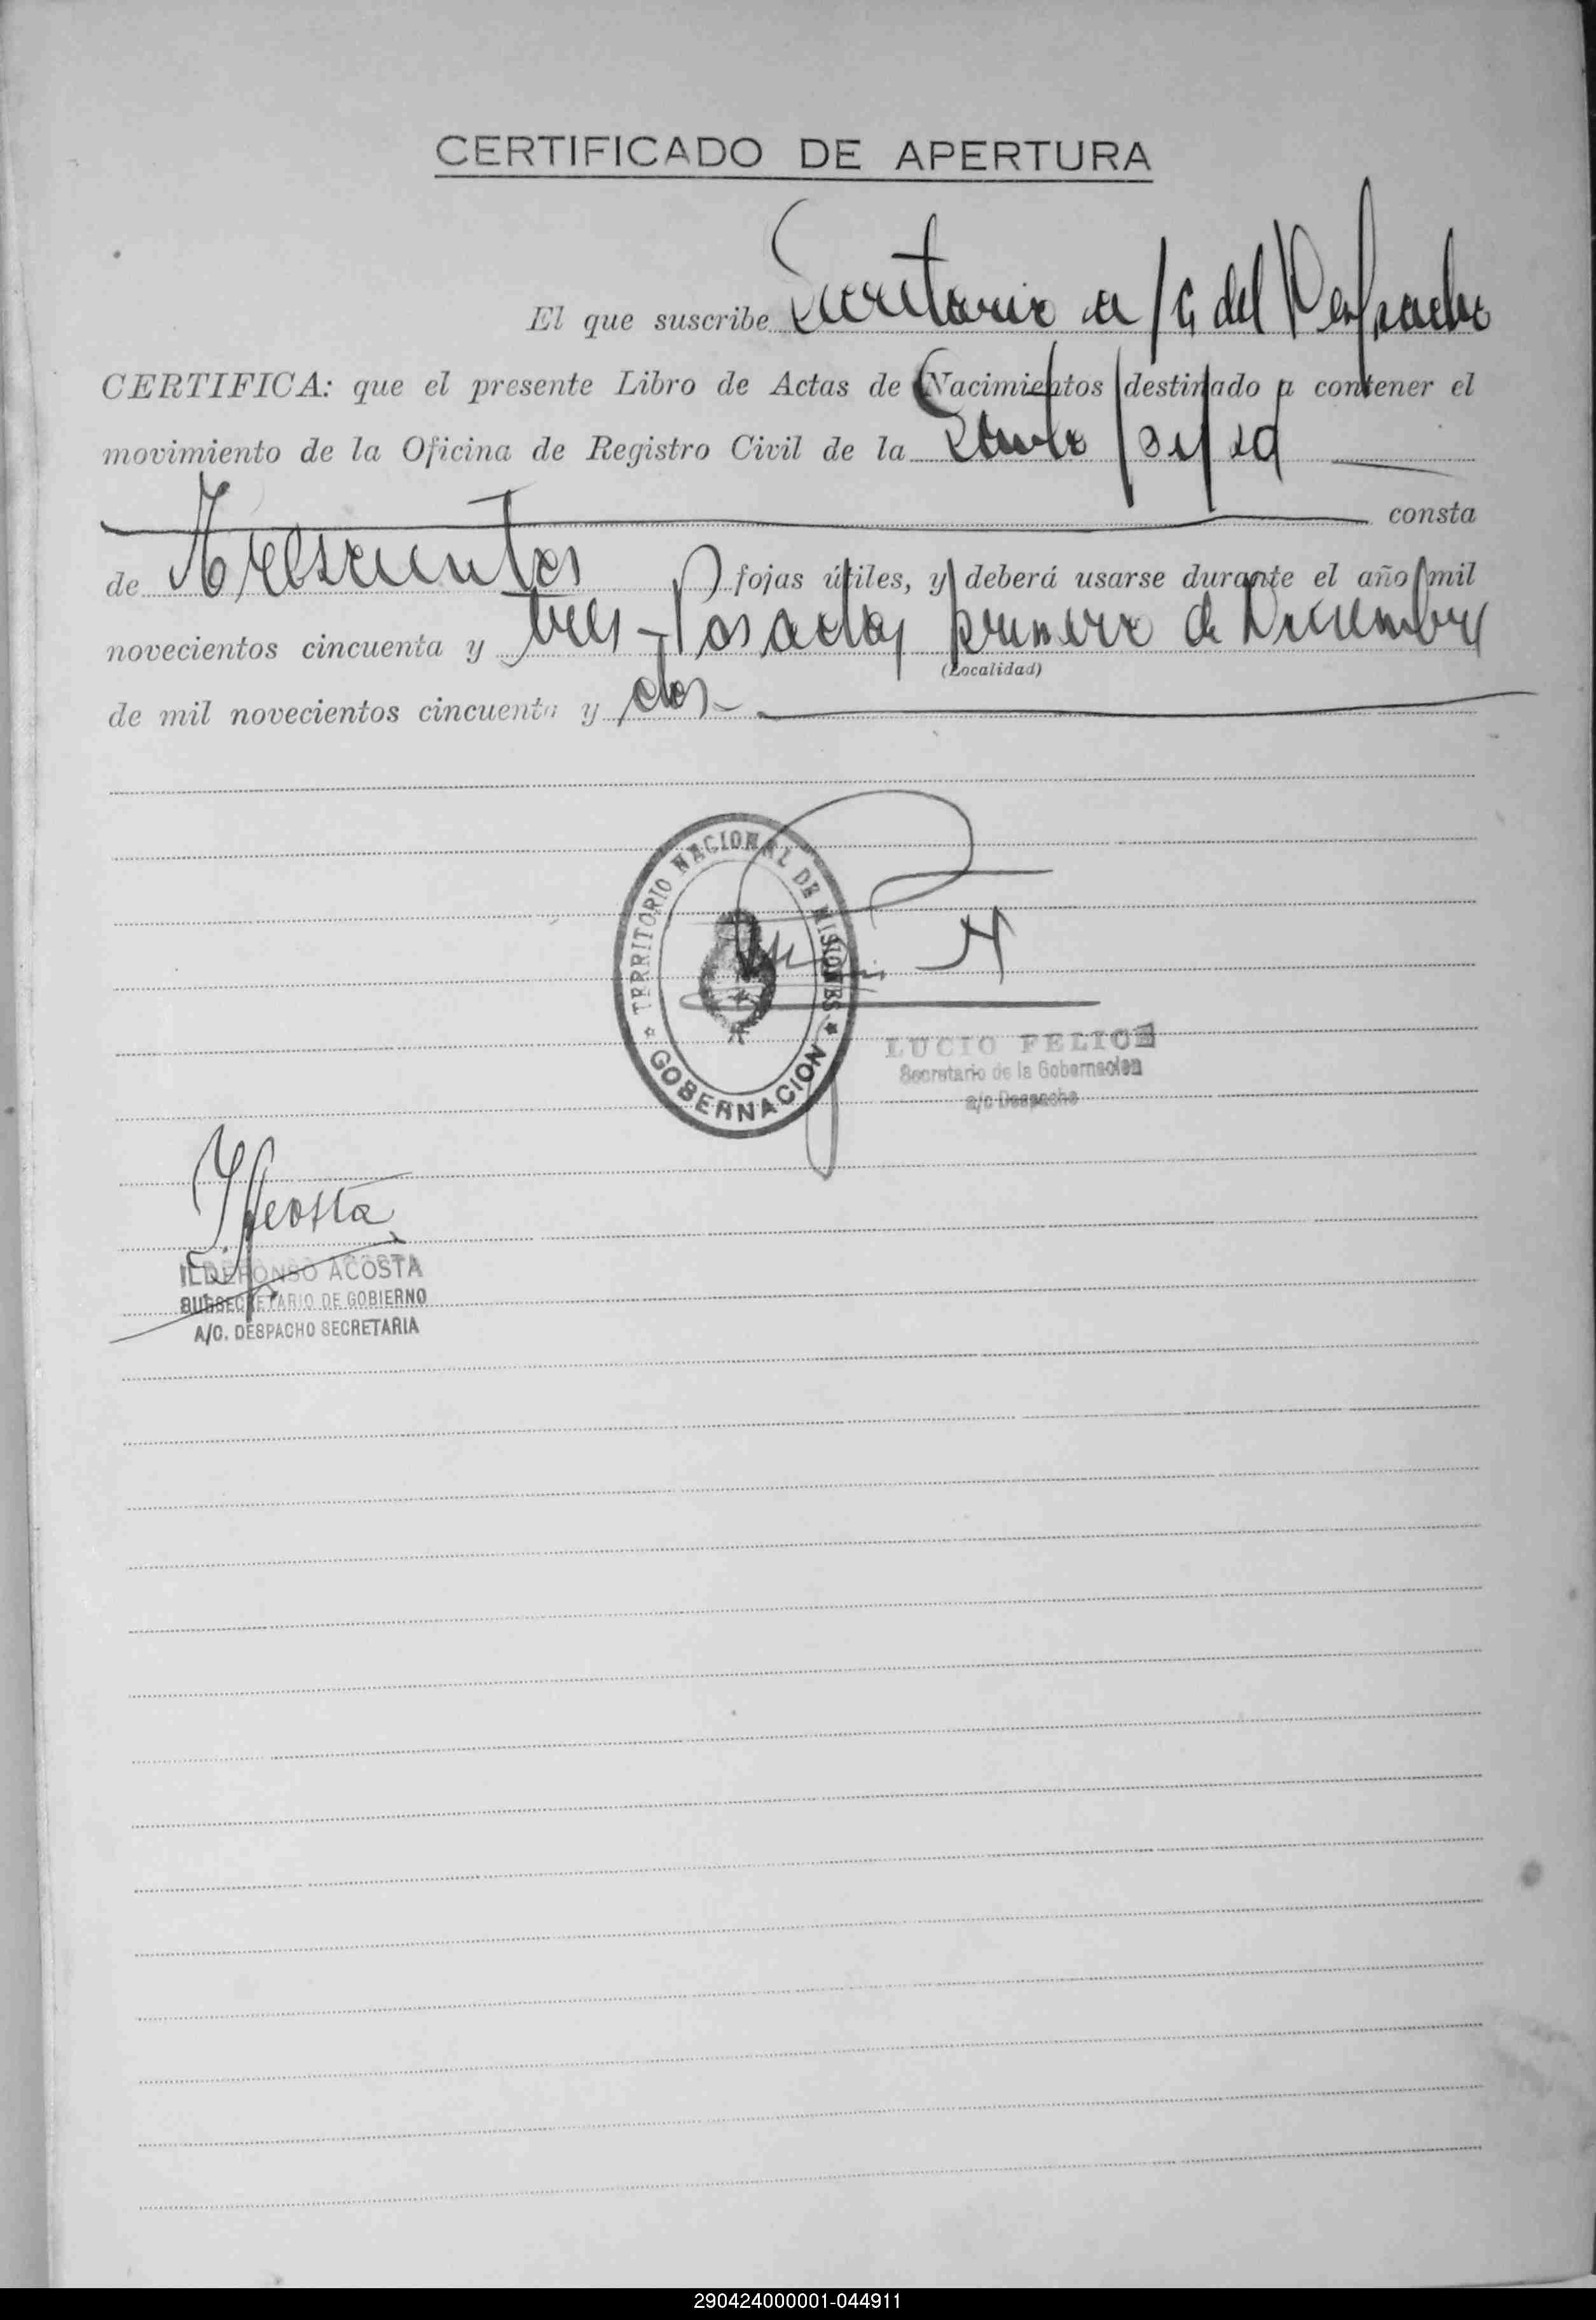 CERTIFICADO DE APERTURA
El que suscribe Secretario a/c del Despacho
CERTIFICA: que el presente Libro de Actas de Nacimientos destinado a contener el
movimiento de la Oficina de Registro Civil de la
consta
de Trescientos fojas útiles, y deberá usarse durante el año mil
novecientos cincuenta y tres - Posadas primero de Diciembre
(Localidad)
de mil novecientos cincuenta y dos.-
TERRITORIO NACIONAL DE MISIONES
GOBERNACION
LUCIO FELICE
Secretario de la Gobernacion
a/c Despacho
I. Acosta
ILDEFONSO ACOSTA
SUBSECRETARIO DE GOBIERNO
A/C. DESPACHO SECRETARIA
290424000001-044911